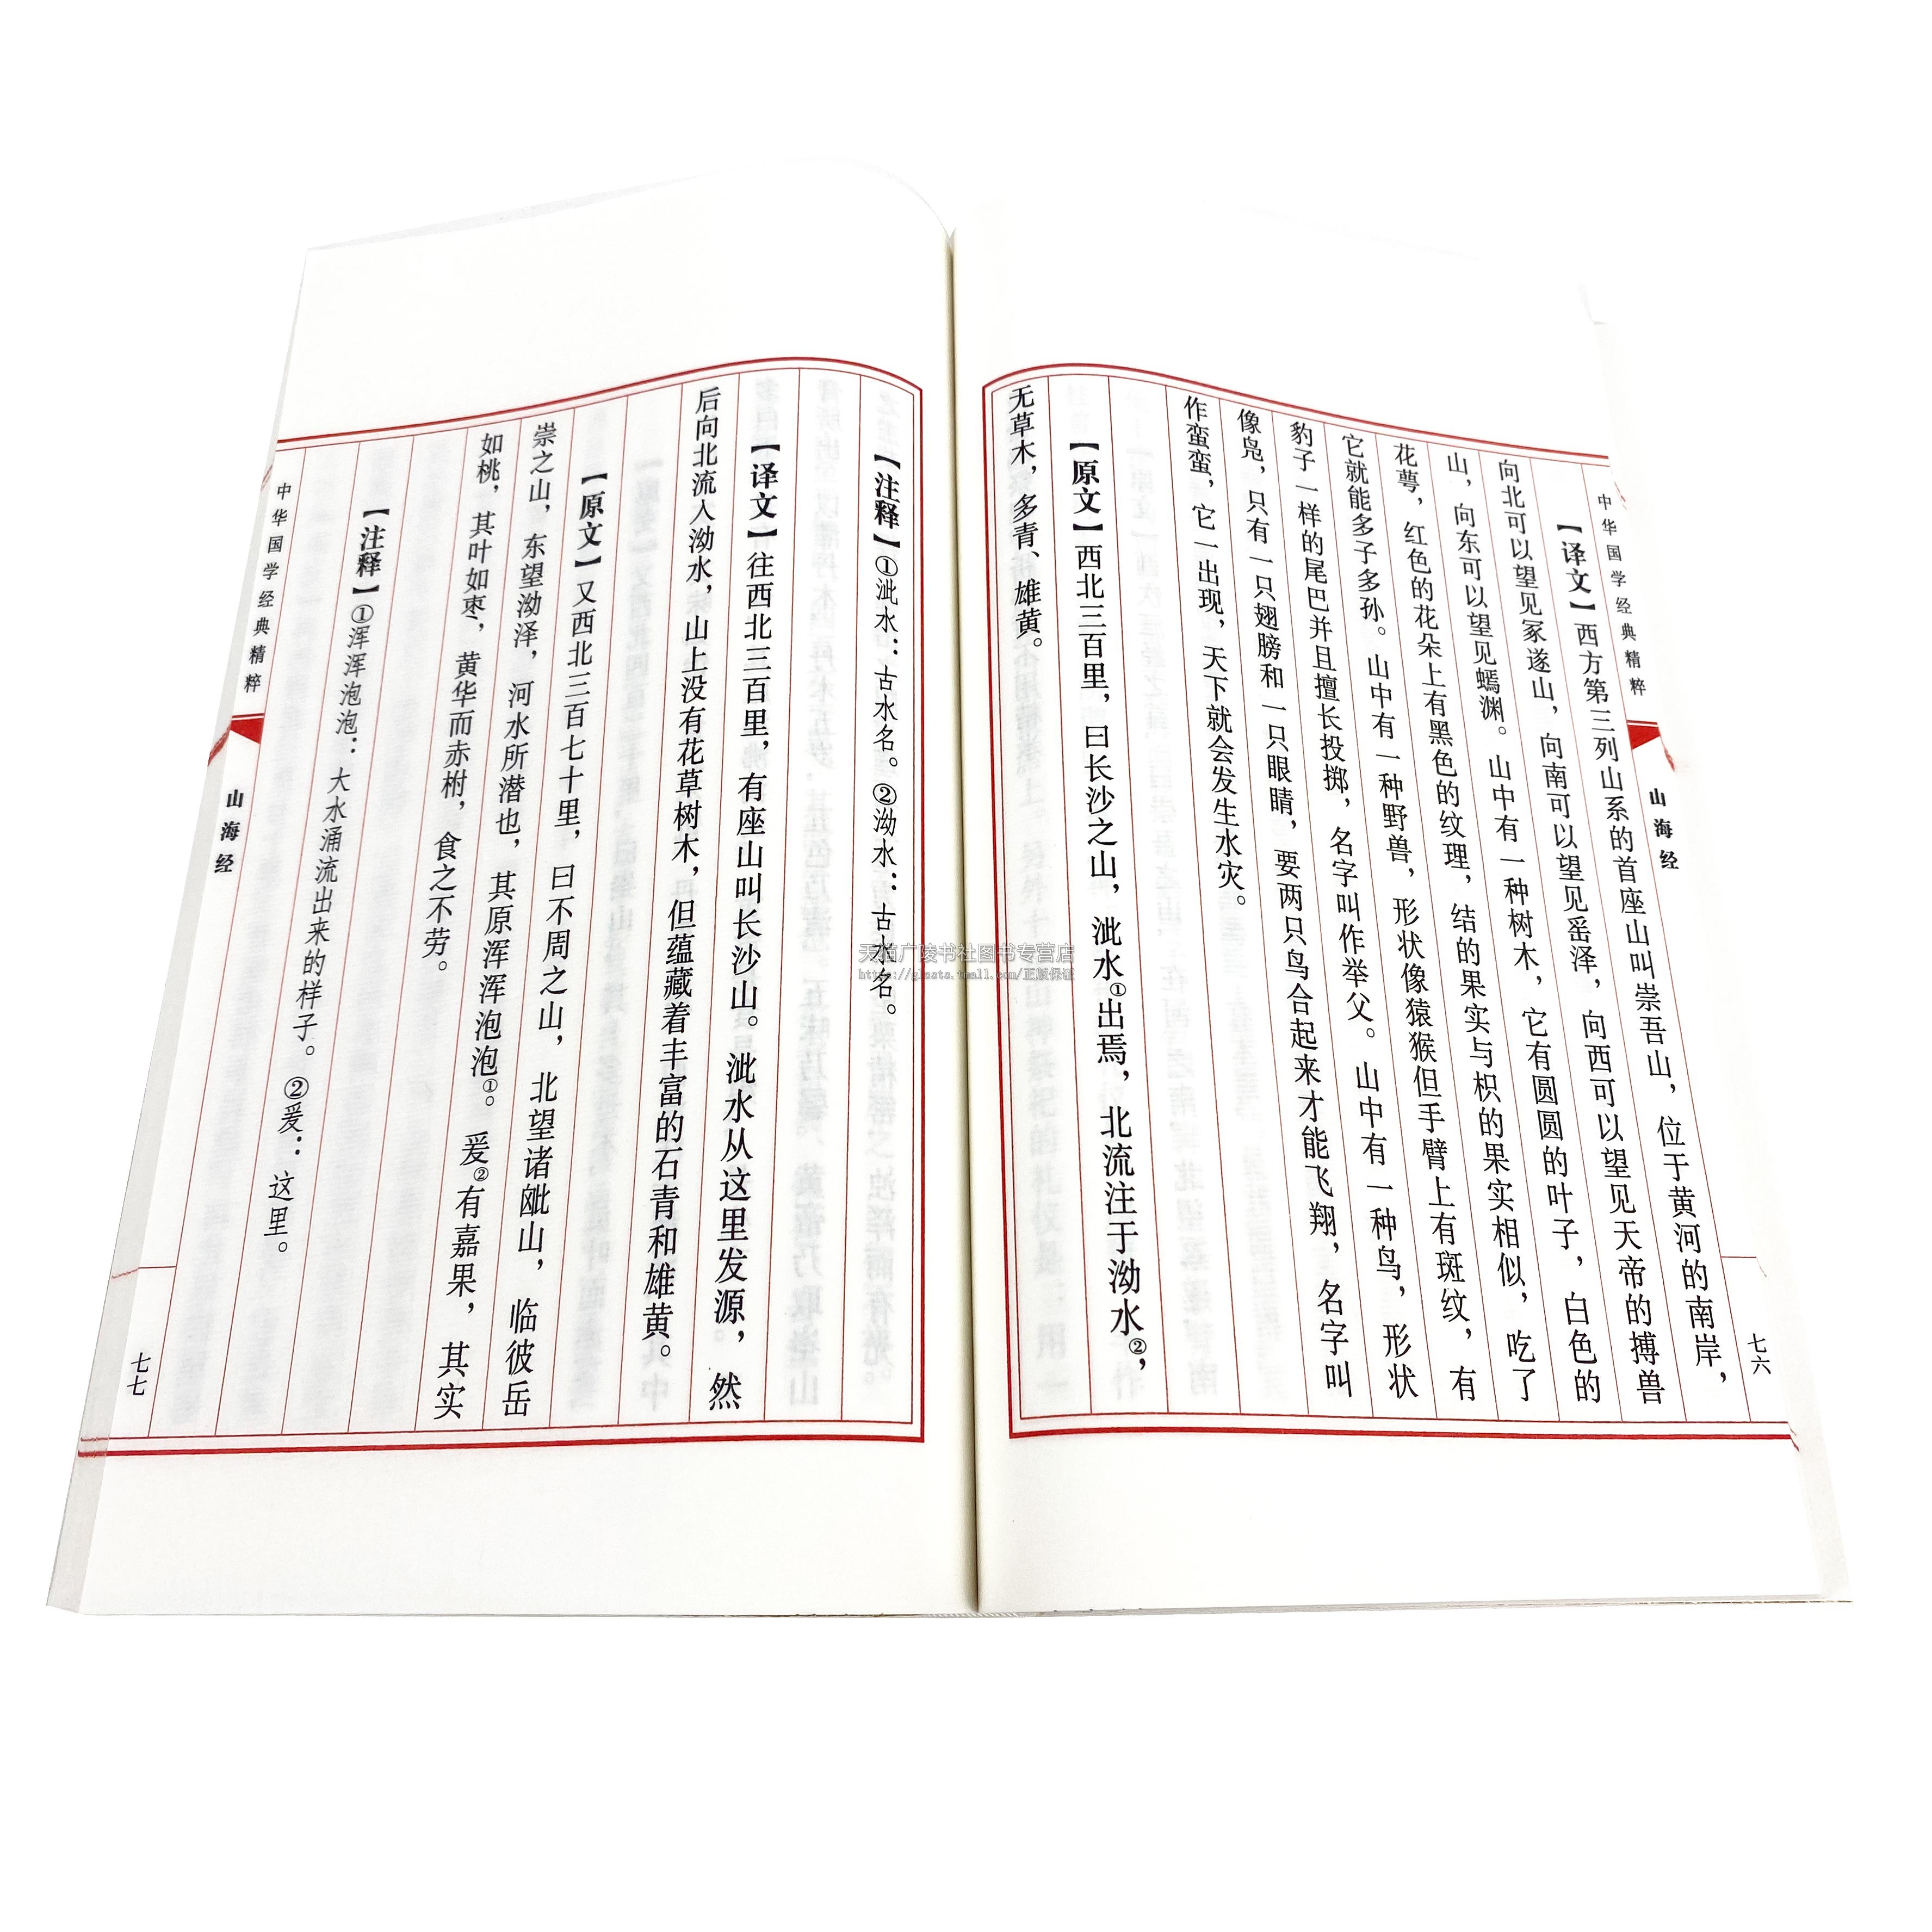 中华国学经典精粹
山海经
七六
【译文】西方第三列山系的首座山叫崇吾山，位于黄河的南岸，
向北可以望见冢遂山，向南可以望见䍃泽，向西可以望见天帝的搏兽
山，向东可以望见䗡渊。山中有一种树木，它有圆圆的叶子，白色的
花萼，红色的花朵上有黑色的纹理，结的果实与枳的果实相似，吃了
它就能多子多孙。山中有一种野兽，形状像猿猴但手臂上有斑纹，有
豹子一样的尾巴并且擅长投掷，名字叫作举父。山中有一种鸟，形状
像凫，只有一只翅膀和一只眼睛，要两只鸟合起来才能飞翔，名字叫
作蛮蛮，它一出现，天下就会发生水灾。
【原文】西北三百里，曰长沙之山，泚水①出焉，北流注于泑水②，
无草木，多青、雄黄。
【注释】①泚水：古水名。②泑水：古水名。
【译文】往西北三百里，有座山叫长沙山。泚水从这里发源，然
后向北流入泑水，山上没有花草树木，但蕴藏着丰富的石青和雄黄。
【原文】又西北三百七十里，曰不周之山，北望诸毗山，临彼岳
崇之山，东望泑泽，河水所潜也，其原浑浑泡泡①。爰②有嘉果，其实
如桃，其叶如枣，黄华而赤柎，食之不劳。
【注释】①浑浑泡泡：大水涌流出来的样子。②爰：这里。
中华国学经典精粹
山海经
七七
天猫广陵书社图书专营店